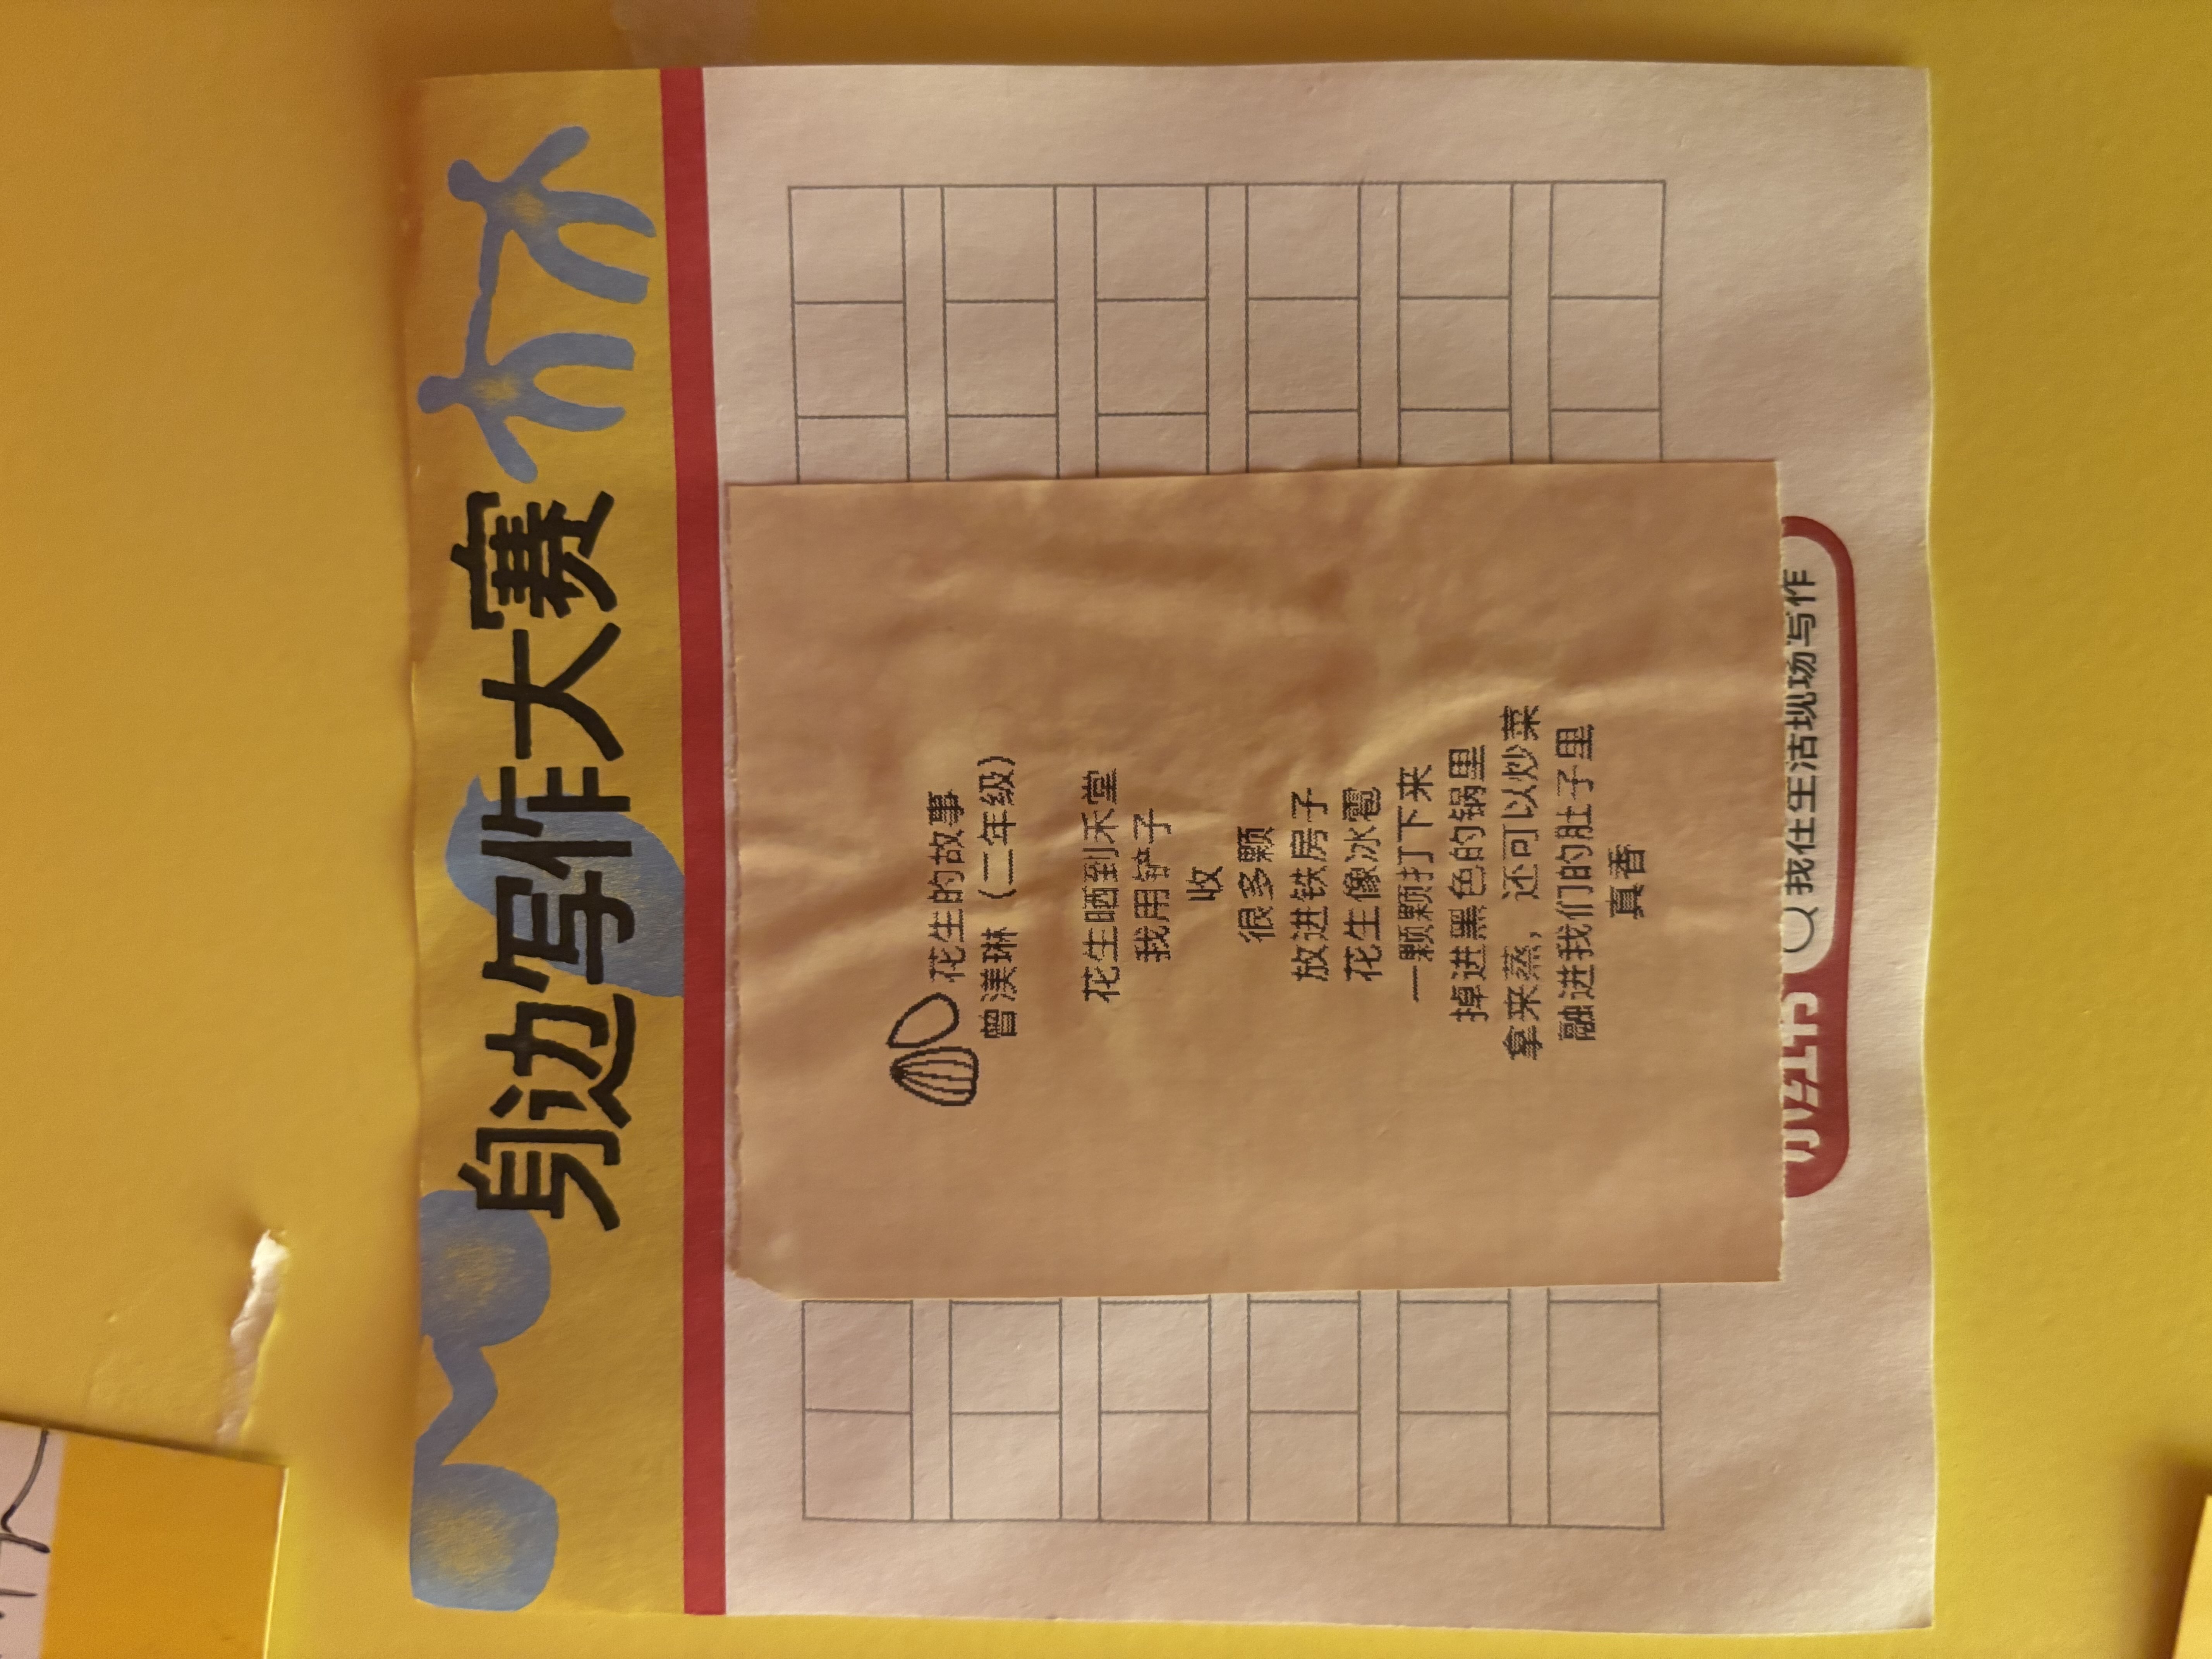 身边写作大赛
花生的故事
曾渼琳（二年级）
花生晒到禾堂
我用铲子
收
很多颗
放进铁房子
花生像冰雹
一颗颗打下来
掉进黑色的锅里
拿来蒸，还可以炒菜
融进我们的肚子里
真香
我在生活现场写作